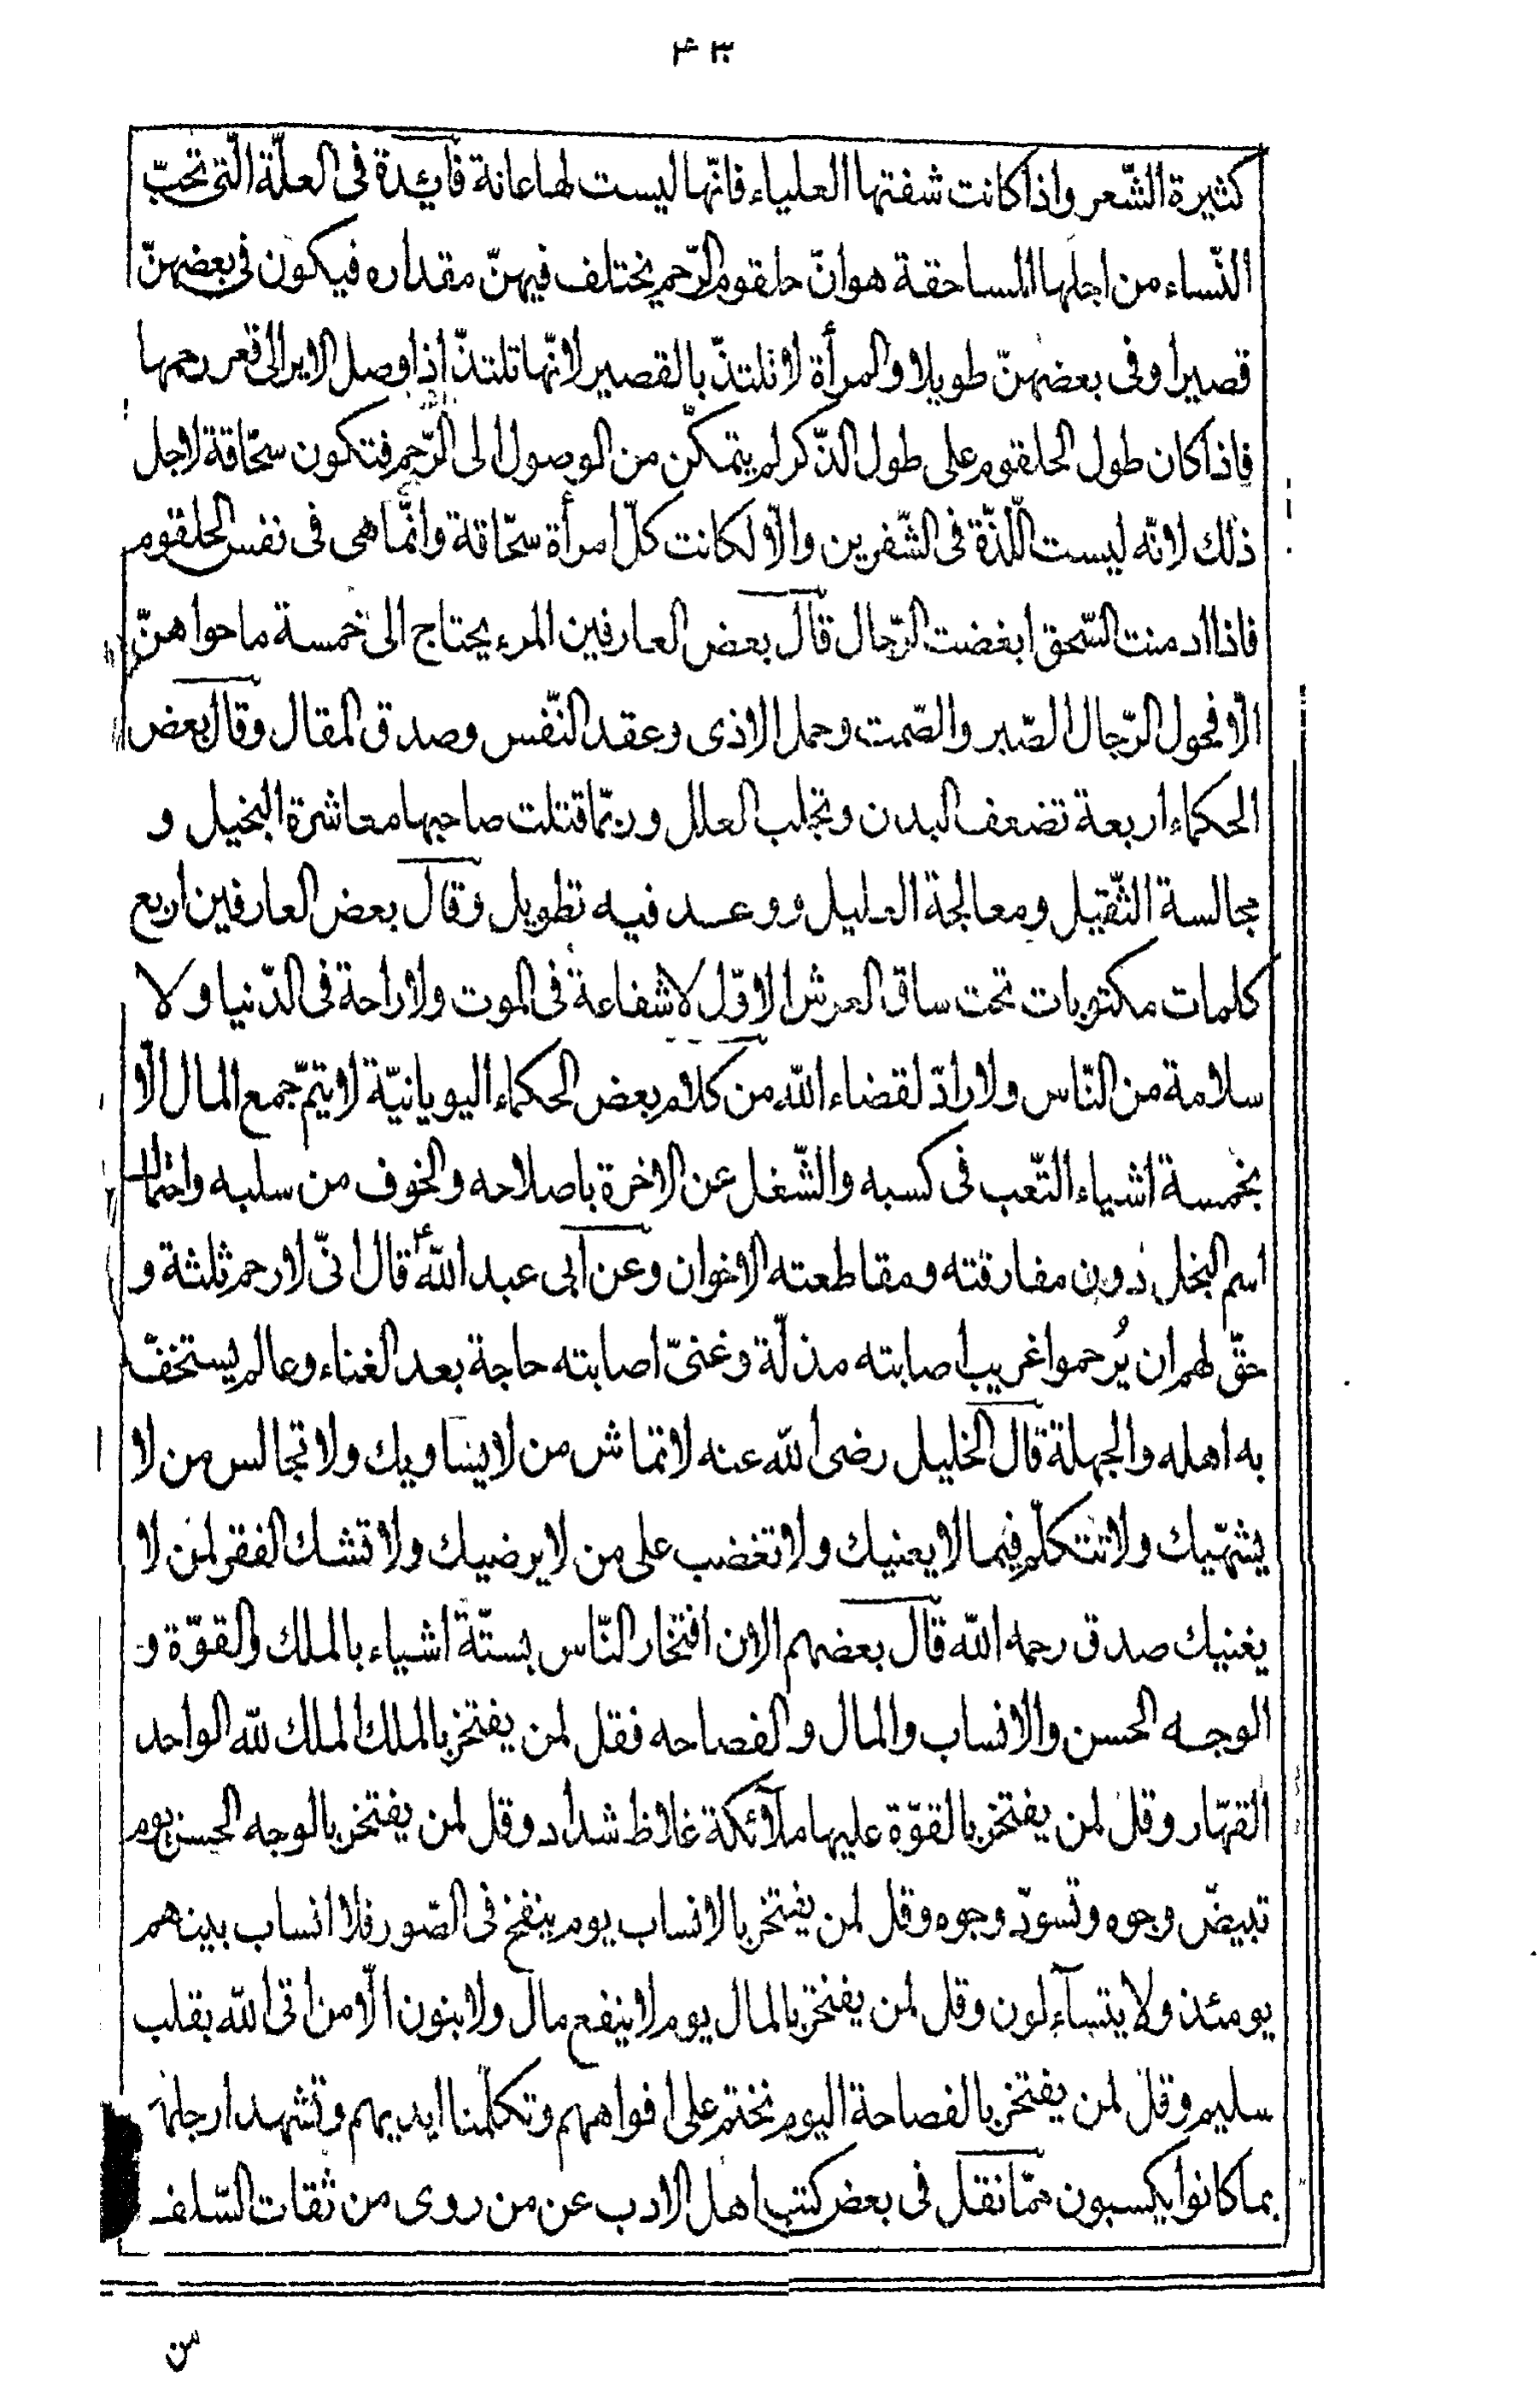 ۴۳
كثيرة الشّعر واذا كانت شفتها العلياء فانّها ليست لها عانة فآيدة فى العلّة الّتى تحبّ
النّساء من اجلها المساحقة هو انّ حلقوم الرّحم يختلف فيهنّ مقداره فيكون فى بعضهنّ
قصيرا وفى بعضهنّ طويلا والمرأة لا تلتذّ بالقصير لانّها تلتذّ اذا وصل الاير الى قعر رحمها
فاذا كان طول الحلقوم على طول الذّكر لم يتمكّن من الوصول الى الرّحم فتكون سحّاقة لاجل
ذلك لانّه ليست اللّذّة فى الشّفرين والّا لكانت كلّ امرأة سحّاقة وانّما هى فى نفس الحلقوم
فاذا ادمنت السّحق ابغضت الرّجال قال بعض العارفين المرء يحتاج الى خمسة ما حواهنّ
الّا فحول الرّجال الصّبر والصّمت وحمل الاذى وعقد النّفس وصدق المقال وقال بعض
الحكماء اربعة تضعف البدن وتجلب العلل وربّما قتلت صاحبها معاشرة البخيل و
مجالسة الثّقيل ومعالجة العليل ووعد فيه تطويل وقال بعض العارفين اربع
كلمات مكتوبات تحت ساق العرش الاوّل لا شفاعة فى الموت ولا راحة فى الدّنيا ولا
سلامة من النّاس ولا رادّ لقضاء اللّه من كلام بعض الحكماء اليويانيّة لا يتمّ جمع المال الّا
بخمسة اشياء التّعب فى كسبه والشّغل عن الاخرة باصلاحه والخوف من سلبه واحتمال
اسم البخل دون مفارقته ومقاطعته الاخوان وعن ابى عبد اللّه ع قال انّى لارحم ثلثة و
حقّ لهم ان يُرحموا غريب اصابته مذلّة وغنىّ اصابته حاجة بعد الغناء وعالم يستخفّ
به اهله والجهلة قال الخليل رضى اللّه عنه لا تماش من لا يساويك ولا تجالس من لا
يشهّيك ولا تتكلّم فيما لا يعنيك ولا تغضب على من لا يرضيك ولا تشك الفقر لمن لا
يغنيك صدق رحمه اللّه قال بعضهم الان افتخار النّاس بستّة اشياء بالملك والقوّة و
الوجه الحسن والانساب والمال والفصاحه فقل لمن يفتخر بالملك الملك للّه الواحد
القهّار وقل لمن يفتخر بالقوّة عليها ملآئكة غلاظ شداد وقل لمن يفتخر بالوجه الحسن يوم
تبيضّ وجوه وتسودّ وجوه وقل لمن يفتخر بالانساب يوم ينفخ فى الصّور فلا انساب بينهم
يومئذ ولا يتسآءلون وقل لمن يفتخر بالمال يوم لا ينفع مال ولا بنون الّا من اتى اللّه بقلب
سليم وقل لمن يفتخر بالفصاحة اليوم نختم على افواههم وتكلّمنا ايديهم وتشهد ارجلهم
بما كانوا يكسبون ممّا نقل فى بعض كتب اهل الادب عن من روى من ثقات السّلف
من